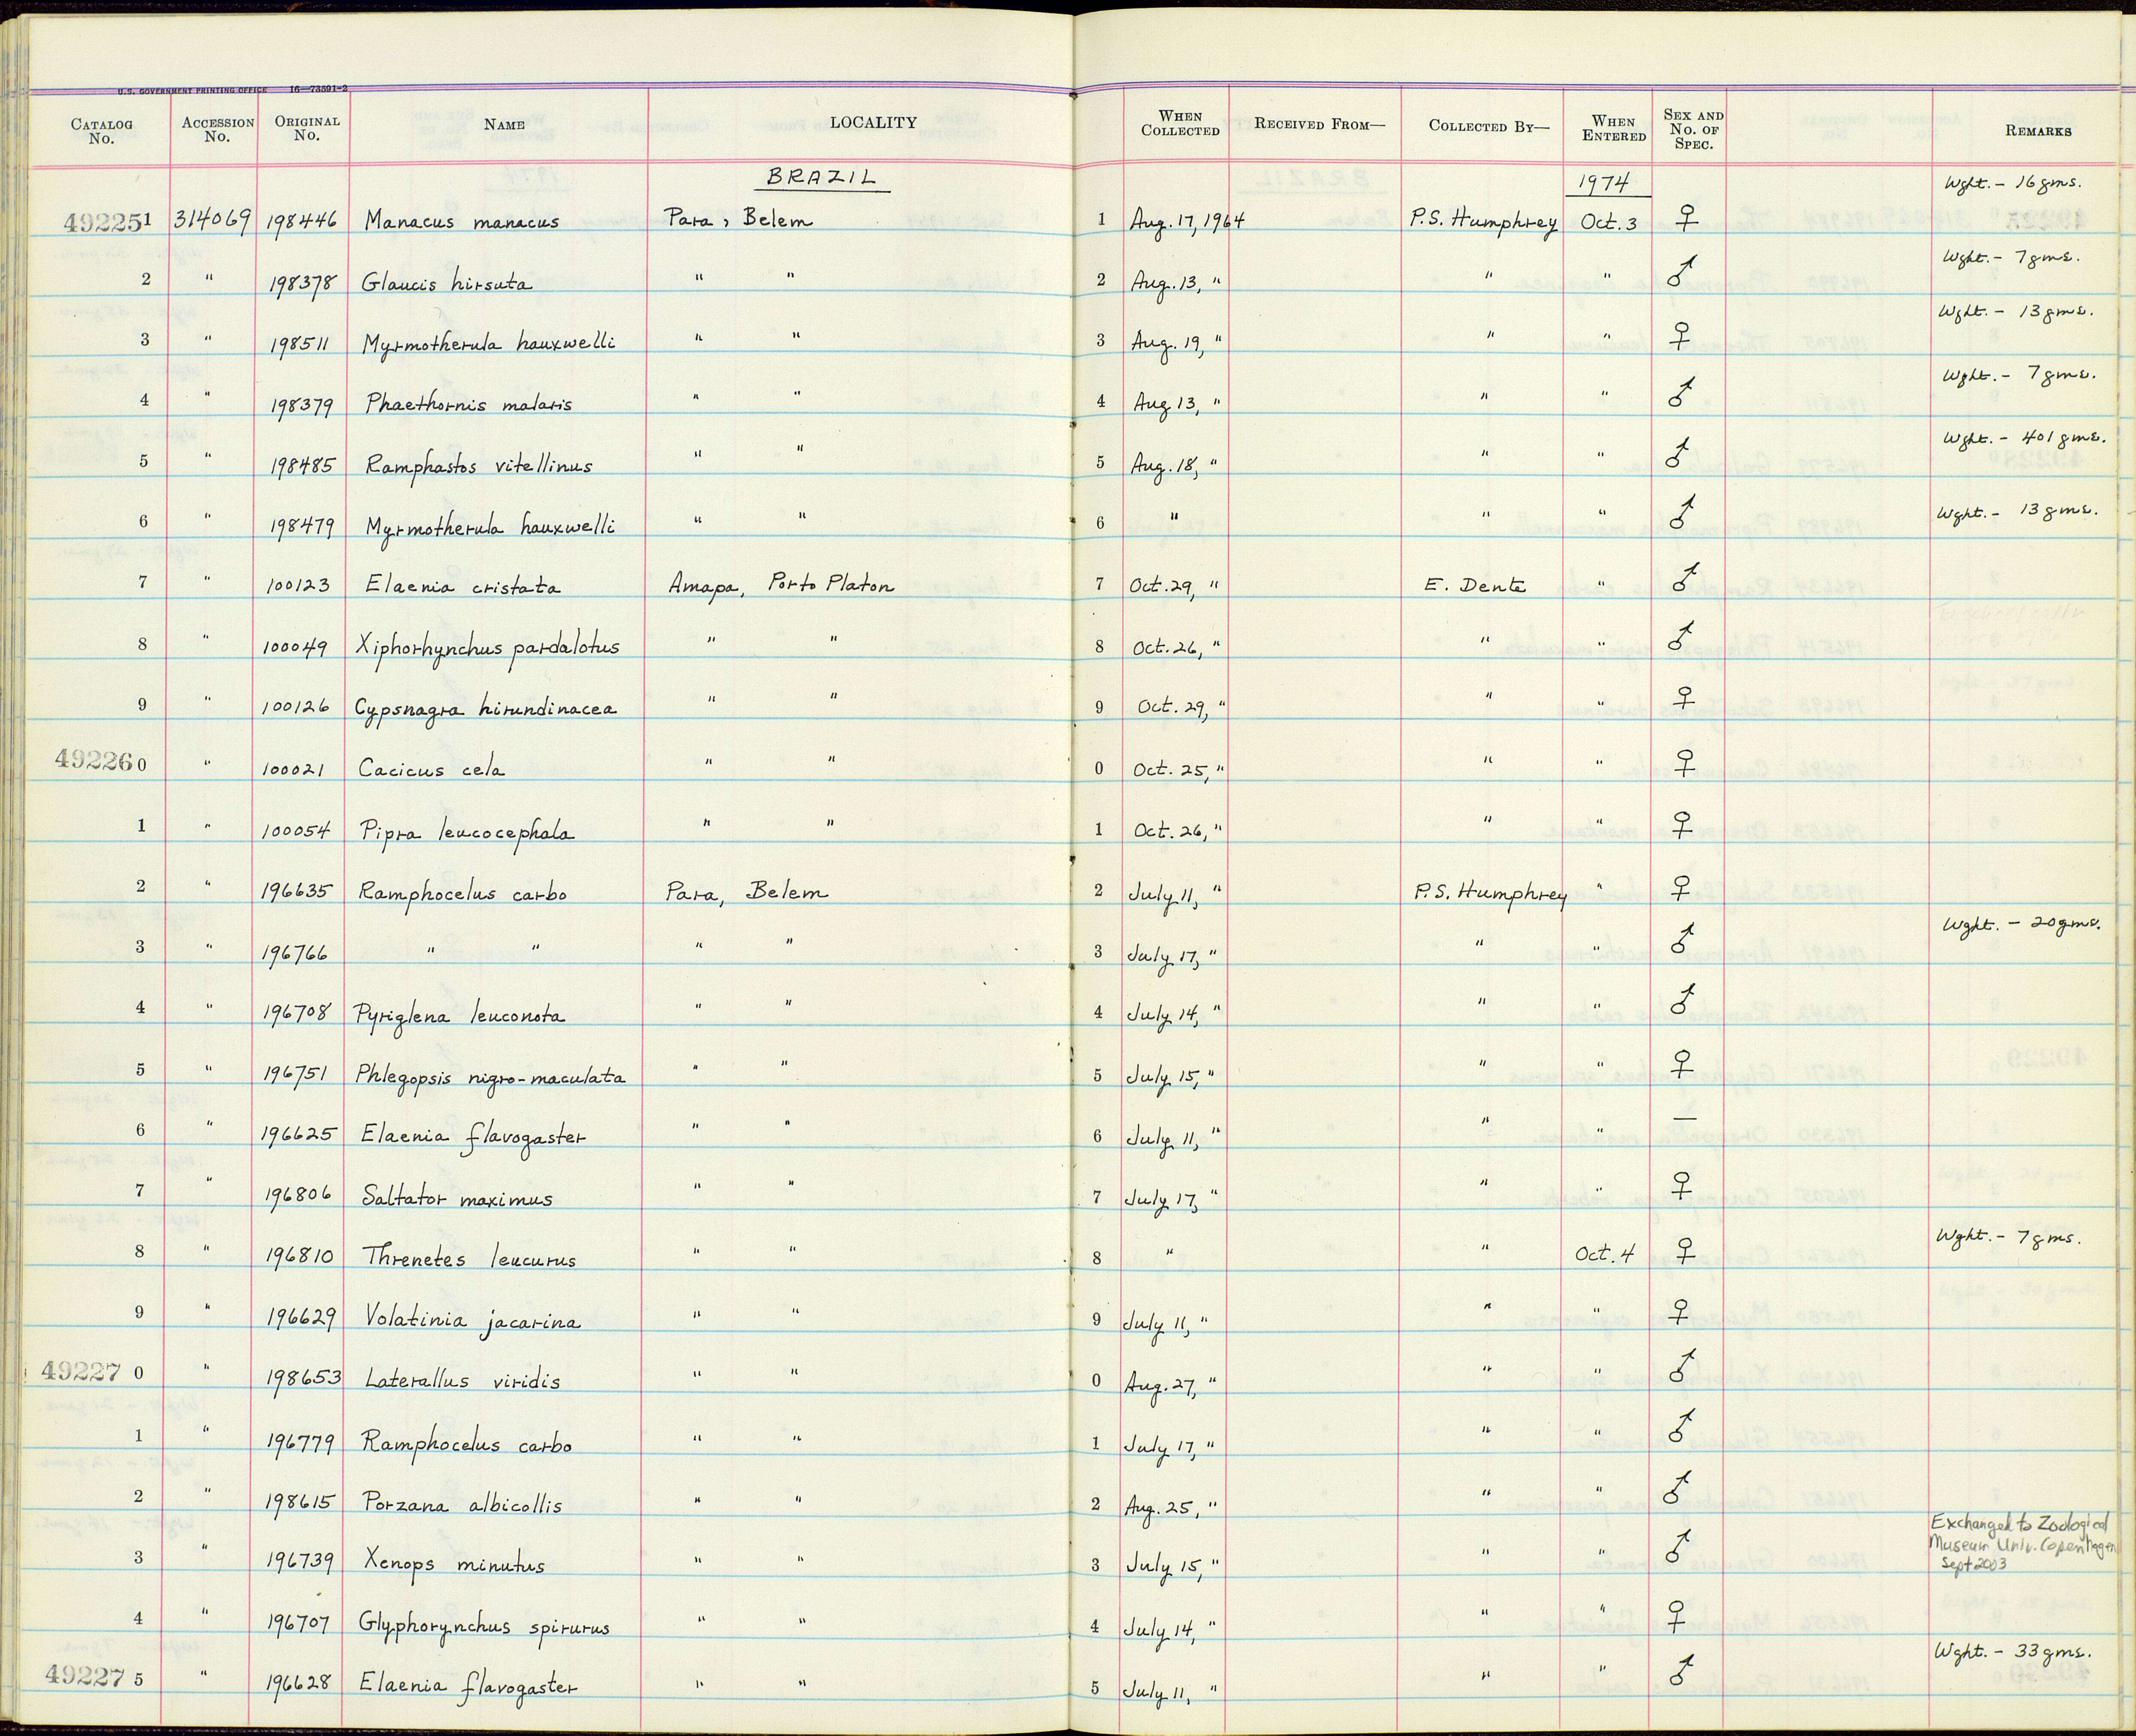 U.S. GOVERNMENT PRINTING OFFICE 16—73591-2
CATALOG No. ACCESSION No. ORIGINAL No. NAME LOCALITY WHEN COLLECTED RECEIVED FROM— COLLECTED BY— WHEN ENTERED SEX AND No. OF SPEC. REMARKS
BRAZIL 1974
492251 314069 198446 Manacus manacus Para, Belem 1 Aug. 17, 1964 P.S. Humphrey Oct. 3 ♀ Wght. - 16 gms.
2 " 198378 Glaucis hirsuta " " 2 Aug. 13, " " " ♂ Wght. - 7 gms.
3 " 198511 Myrmotherula hauxwelli " " 3 Aug. 19, " " " ♀ Wght. - 13 gms.
4 " 198379 Phaethornis malaris " " 4 Aug 13, " " " ♂ Wght. - 7 gms.
5 " 198485 Ramphastos vitellinus " " 5 Aug. 18, " " " ♂ Wght. - 401 gms.
6 " 198479 Myrmotherula hauxwelli " " 6 " " " ♂ Wght. - 13 gms.
7 " 100123 Elaenia cristata Amapa, Porto Platon 7 Oct. 29, " E. Dente " ♂
8 " 100049 Xiphorhynchus pardalotus " " 8 Oct. 26, " " " ♂
9 " 100126 Cypsnagra hirundinacea " " 9 Oct. 29, " " " ♀
492260 " 100021 Cacicus cela " " 0 Oct. 25, " " " ♀
1 " 100054 Pipra leucocephala " " 1 Oct. 26, " " " ♀
2 " 196635 Ramphocelus carbo Para, Belem 2 July 11, " P.S. Humphrey " ♀
3 " 196766 " " " " 3 July 17, " " " ♂ Wght. - 20 gms.
4 " 196708 Pyriglena leuconota " " 4 July 14, " " " ♂
5 " 196751 Phlegopsis nigro-maculata " " 5 July 15, " " " ♀
6 " 196625 Elaenia flavogaster " " 6 July 11, " " " —
7 " 196806 Saltator maximus " " 7 July 17, " " " ♀
8 " 196810 Threnetes leucurus " " 8 " " Oct. 4 ♀ Wght. - 7 gms.
9 " 196629 Volatinia jacarina " " 9 July 11, " " " ♀
49227 0 " 198653 Laterallus viridis " " 0 Aug. 27, " " " ♂
1 " 196779 Ramphocelus carbo " " 1 July 17, " " " ♂
2 " 198615 Porzana albicollis " " 2 Aug. 25, " " " ♂
3 " 196739 Xenops minutus " " 3 July 15, " " " ♂ Exchanged to Zoological
Museum Univ. Copenhagen
Sept 2003
4 " 196707 Glyphorynchus spirurus " " 4 July 14, " " " ♀
49227 5 " 196628 Elaenia flavogaster " " 5 July 11, " " " ♂ Wght. - 33 gms.